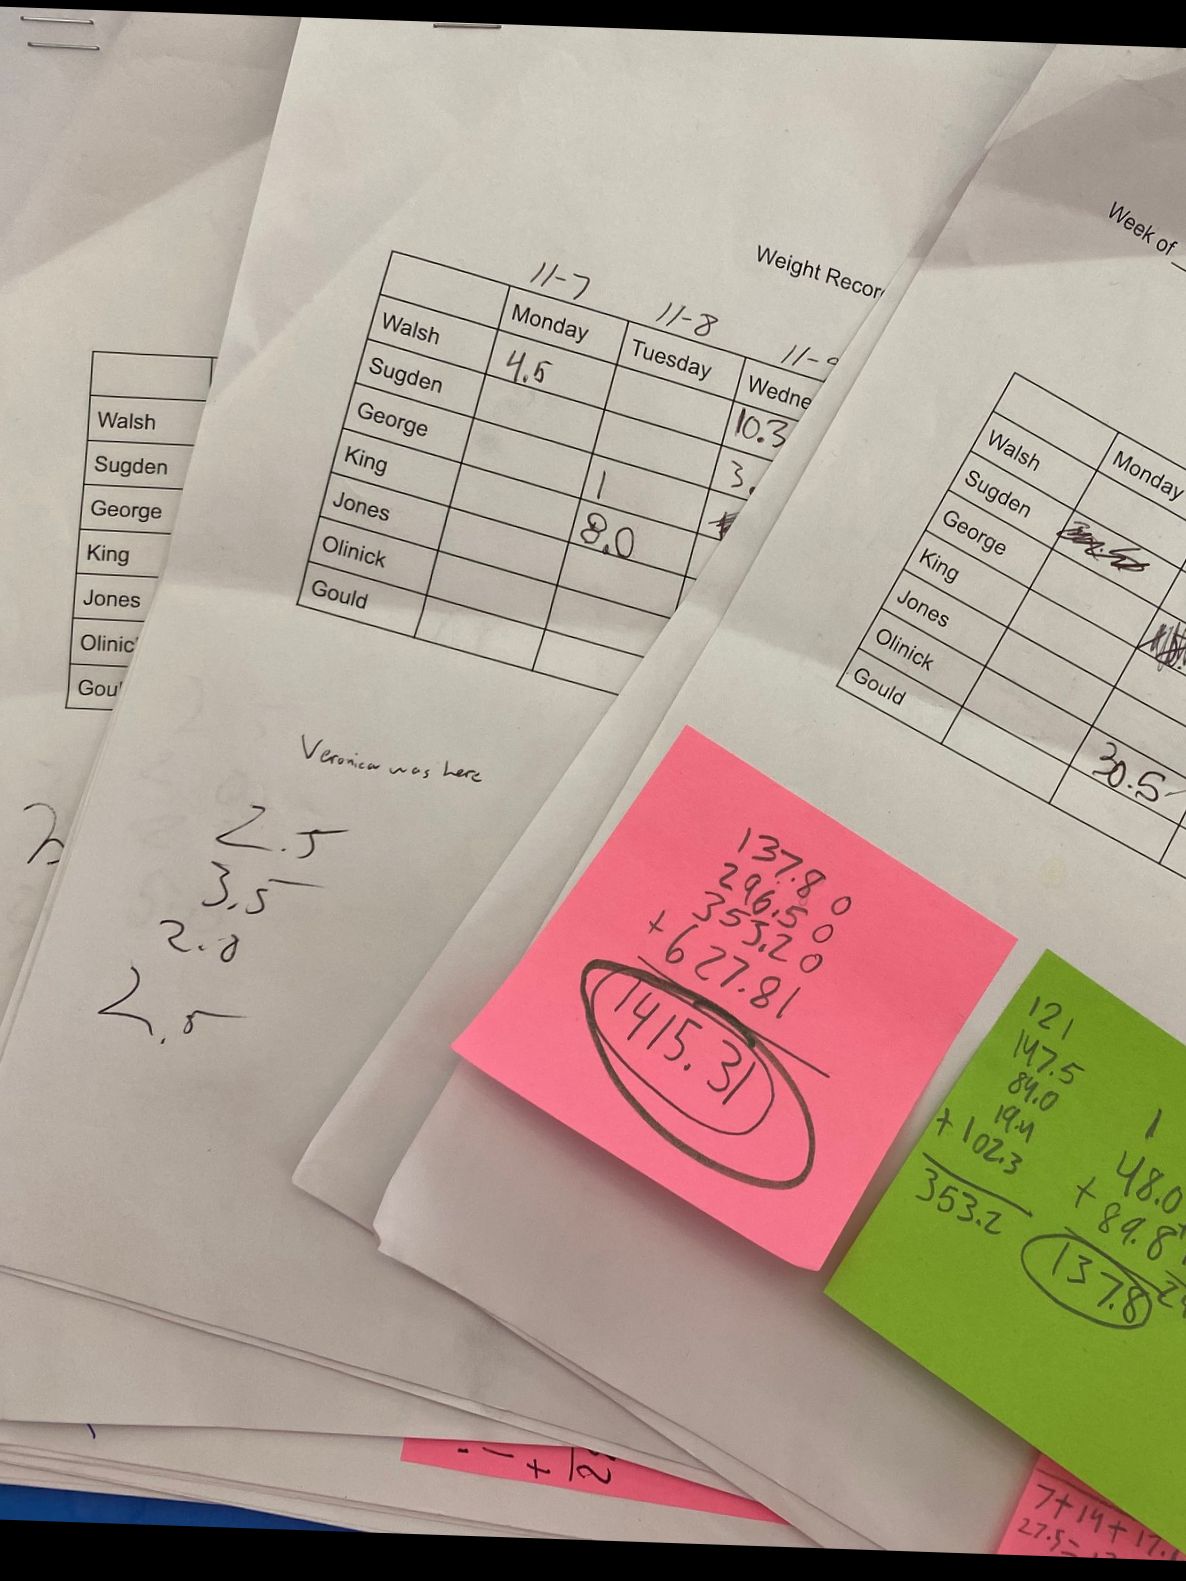 Walsh
Sugden
George
King
Jones
Weight
11-7 11-8
Monday Tuesday
Walsh 4.5 10.3
Sugden
George 1
King 8.0
Jones
Olinick
Gould
Veronica was here
2.5
3.5
2.0
2.5
Week of
Monday
Walsh
Sugden
George
King
Jones
Olinick 30.5
Gould
137.80
296.50
353.20
+ 627.81
1415.31
121
147.5
84.0
19.4
+ 102.3
353.2
1
48.0
+ 89.8
137.8
7+14+
27.5=